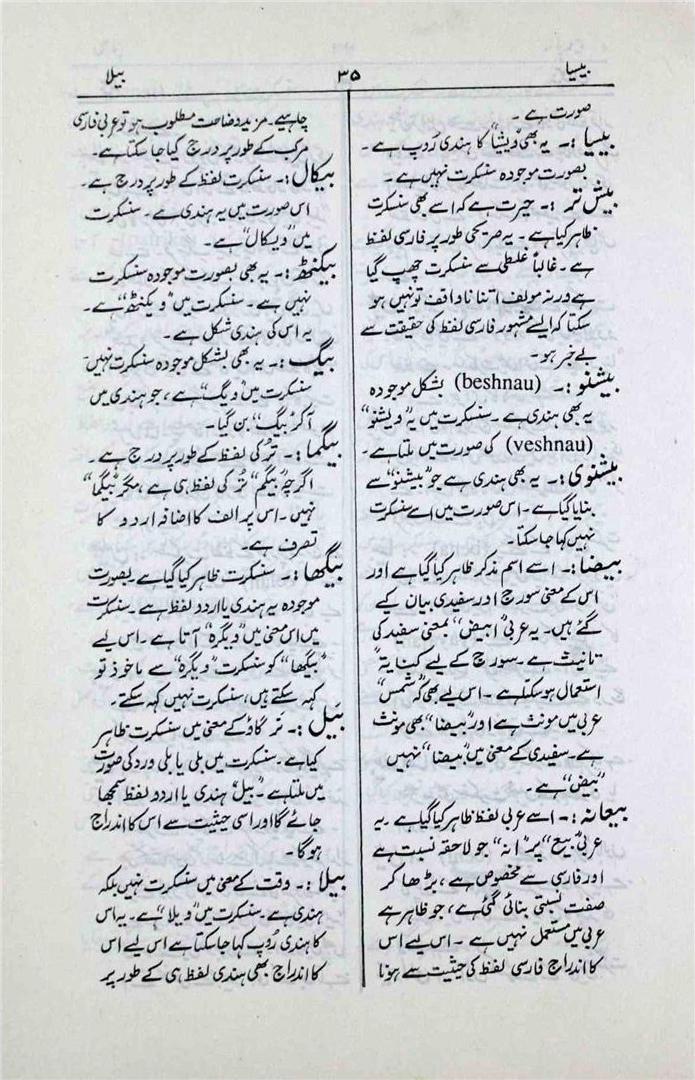 بیسیا
۳۵
بیلا
صورت ہے۔
بیسیا :۔ یہ بھی ”ویشیا“ کا ہندی رُوپ ہے۔
بصورت موجودہ سنسکرت نہیں ہے۔
بیش تر :۔ حیرت ہے کہ اسے بھی سنسکرت
ظاہر کیا ہے۔ یہ صریحی طور پر فارسی لفظ
ہے۔ غالباً غلطی سے سنسکرت چھپ گیا
ہے ورنہ مولف اتنا ناواقف تو نہیں ہو
سکتا کہ ایسے مشہور فارسی لفظ کی حقیقت سے
بے خبر ہو۔
بیشنو :۔ (beshnau) بشکل موجودہ
یہ بھی ہندی ہے۔ سنسکرت میں یہ ”ویشنو“
(veshnau) کی صورت میں ملتا ہے۔
بیشنوی :۔ یہ بھی ہندی ہے جو ”بیشنو“ سے
بنایا گیا ہے۔ اس صورت میں اسے سنسکرت
نہیں کہا جا سکتا۔
بیضا :۔ اسے اسم مذکر ظاہر کیا گیا ہے اور
اس کے معنی سورج اور سفیدی بیان کیے
گئے ہیں۔ یہ عربی ”ابیض“ بمعنی سفید کی
تانیث ہے۔ سورج کے لیے کنایۃً
استعمال ہو سکتا ہے۔ اس لیے بھی کہ ”شمس“
عربی میں مونث ہے اور ”بیضا“ بھی مونث
ہے۔ سفیدی کے معنی میں ”بیضا“ نہیں
”بیض“ ہے۔
بیعانہ :۔ اسے عربی لفظ ظاہر کیا گیا ہے۔ یہ
عربی ”بیع“ پر ”انہ“ جو لاحقہ نسبت ہے
اور فارسی سے مخصوص ہے، بڑھا کر
صفت نسبتی بنائی گئی ہے، جو ظاہر ہے
عربی میں مستعمل نہیں ہے۔ اس لیے اس
کا اندراج فارسی لفظ کی حیثیت سے ہونا
چاہیے۔ مزید وضاحت مطلوب ہو تو عربی فارسی
مرکب کے طور پر درج کیا جا سکتا ہے۔
بیکال :۔ سنسکرت لفظ کے طور پر درج ہے۔
اس صورت میں یہ ہندی ہے۔ سنسکرت
میں ”ویکال“ ہے۔
بیکنٹھ :۔ یہ بھی بصورت موجودہ سنسکرت
نہیں ہے۔ سنسکرت میں ”ویکنٹھ“ ہے۔
یہ اس کی ہندی شکل ہے۔
بیگ :۔ یہ بھی بشکل موجودہ سنسکرت نہیں۔
سنسکرت میں ”ویگ“ ہے، جو ہندی میں
آ کر ”بیگ“ بن گیا۔
بیگما :۔ تُرکی لفظ کے طور پر درج ہے۔
اگرچہ ”بیگم“ تُرکی لفظ ہی ہے، مگر ”بیگما“
نہیں۔ اس پر الف کا اضافہ اردو کا
تصرف ہے۔
بیگھا :۔ سنسکرت ظاہر کیا گیا ہے۔ بصورت
موجودہ یہ ہندی یا اردو لفظ ہے۔ سنسکرت
میں اس معنی میں ”ویگرہ“ آتا ہے۔ اس لیے
”بیگھا“ کو سنسکرت ”ویگرہ“ سے ماخوذ تو
کہہ سکتے ہیں، سنسکرت نہیں کہہ سکتے۔
بَیل :۔ نر گاؤ کے معنی میں سنسکرت ظاہر
کیا ہے۔ سنسکرت میں بلی یا بلی ورد کی صورت
میں ملتا ہے۔ ”بیل“ ہندی یا اردو لفظ سمجھا
جائے گا اور اسی حیثیت سے اس کا اندراج
ہوگا۔
بیلا :۔ وقت کے معنی میں سنسکرت نہیں بلکہ
ہندی ہے۔ سنسکرت میں ”ویلا“ ہے۔ یہ اس
کا ہندی رُوپ کہا جا سکتا ہے اس لیے اس
کا اندراج بھی ہندی لفظ ہی کے طور پر